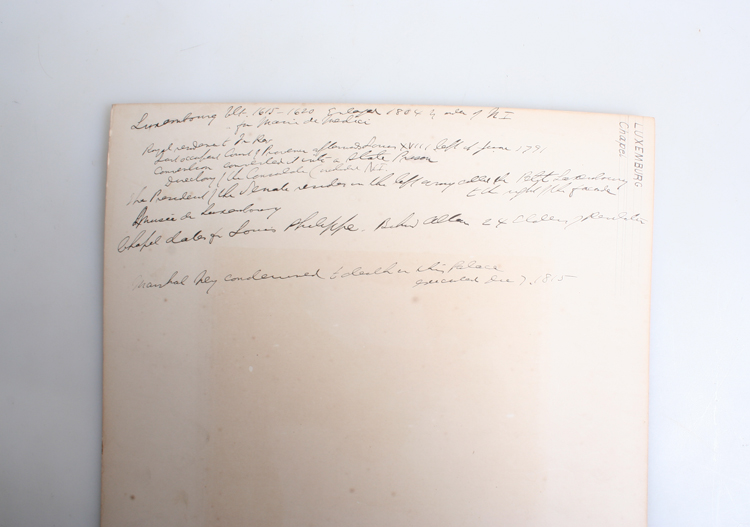 Luxembourg blt. 1615-1620 Enlarged 1804 by order of N I
for Marie de Medici
Royal residence t
Last occupant Count of Provence afterwards Louis XVIII left it June 1791
Convention converted it into a State Prison
Directory of the Consulate
The President of the Senate resides in the left wing called the Petit Luxembourg
to the right of the facade
Musée du Luxembourg
Chapel dates fr Louis Philippe. Behind Altar
Marshal Ney condemned to death in this Palace
executed Dec 7, 1815
LUXEMBURG
Chapel